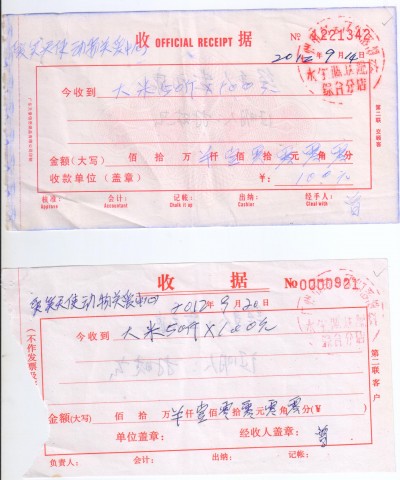 收 OFFICIAL RECEIPT 据 № 4221342
天使动物关爱中心 2012年9月14日
今收到 大米50斤×100元
金额(大写) 佰 拾 万 仟壹佰零拾零元零角零分
收款单位(盖章) ¥: 100元
核准: 会计: 记帐: 出纳: 经手人:
Approve Account Chalk it up Cashier Cleat with
第二联 交顾客
收 据 No 0000921
天使动物关爱中心 2012年9月20日
今收到 大米50斤×100元
金额(大写) 佰 拾 万 仟壹佰零拾零元零角零分(¥ )
单位盖章: 经收人盖章:
负责人: 会计: 出纳: 记帐:
(不作发票
第二联 客户